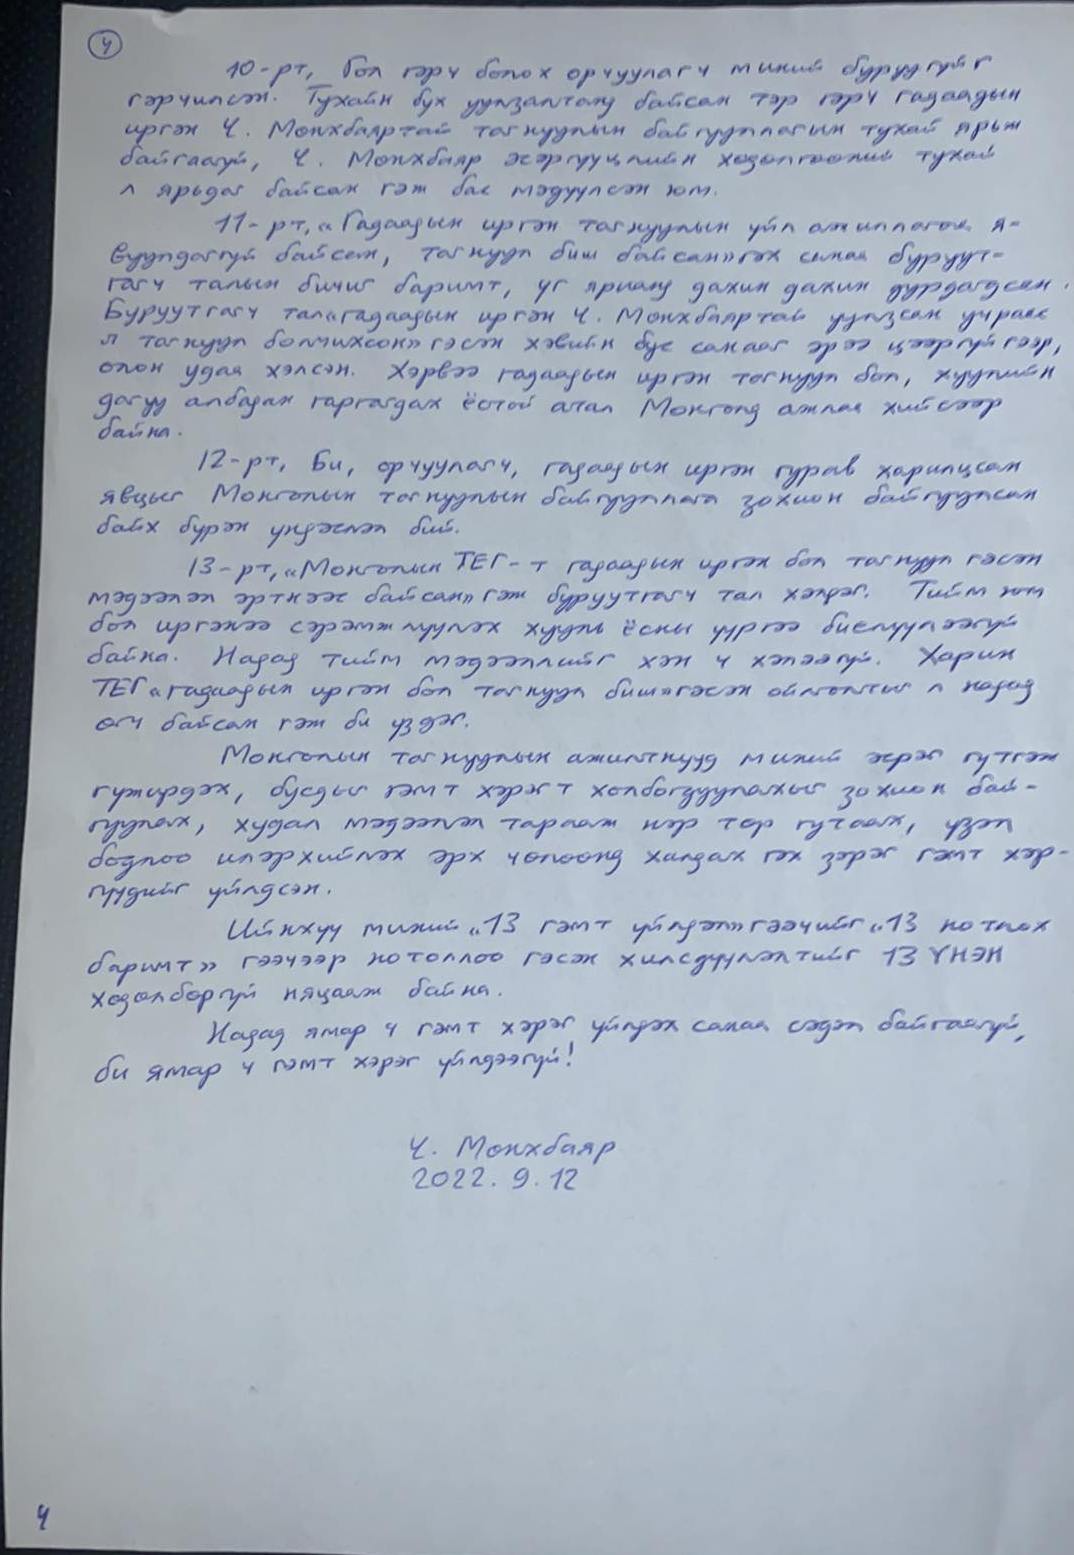 4
10-рт, бол гэрч болох орчуулагч миний буруугүйг
гэрчилсэн. Тухайн бүх уулзалтанд байсан тэр гэрч гадаадын
иргэн Ч. Мөнхбаяртай тагнуулын байгууллагын тухай ярьж
байгаагүй, Ч. Мөнхбаяр эсэргүүцлийн хөдөлгөөний тухай
л ярьдаг байсан гэж бас мэдүүлсэн юм.
11-рт, «Гадаадын иргэн тагнуулын үйл ажиллагаа я-
вуулдаггүй байсан, тагнуул биш байсан» гэх санаа буруут-
гагч талын бичиг баримт, үг яриаид дахин дахин дурдагдсан.
Буруутгагч тал «гадаадын иргэн Ч. Мөнхбаяртай уулзсан учраас
л тагнуул болчихсон» гэсэн хэвийн бус санааг эрээ цээргүйгээр,
олон удаа хэлсэн. Хэрвээ гадаадын иргэн тагнуул бол, хуулийн
дагуу албадан гаргагдах ёстой атал Монголд ажлаа хийсээр
байна.
12-рт, Би, орчуулагч, гадаадын иргэн гурав харилцсан
явцыг Монголын тагнуулын байгууллага зохион байгуулсан
байх бүрэн үндэслэл бий.
13-рт, «Монголын ТЕГ-т гадаадын иргэн бол тагнуул гэсэн
мэдээлэл эртнээс байсан» гэж буруутгагч тал хэлдэг. Тийм юм
бол иргэнээ сэрэмжлүүлэх хууль ёсны үүргээ биелүүлээгүй
байна. Надад тийм мэдээллийг хэн ч хэлээгүй. Харин
ТЕГ «гадаадын иргэн бол тагнуул биш» гэсэн ойлголтыг л надад
өгч байсан гэж би үздэг.
Монголын тагнуулын ажилтнууд миний эсрэг гүтгэж
гүжирдэх, бусдыг гэмт хэрэгт холбогдуулахыг зохион бай-
гуулах, худал мэдээлэл тарааж нэр төр гутаах, үзэл
бодлоо илэрхийлэх эрх чөлөөнд халдах гэх зэрэг гэмт хэр-
гүүдийг үйлдсэн.
Ийнхүү миний «13 гэмт үйлдэл» гээчийг «13 нотлох
баримт» гээчээр нотоллоо гэсэн хилсдүүлэлтийг 13 ҮНЭН
хөдөлбөргүй няцааж байна.
Надад ямар ч гэмт хэрэг үйлдэх санаа сэдэл байгаагүй,
би ямар ч гэмт хэрэг үйлдээгүй!
Ч. Мөнхбаяр
2022. 9. 12
4